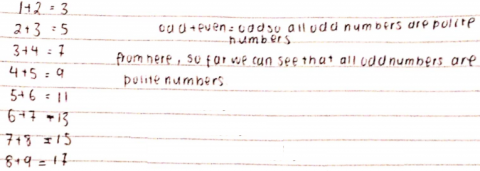 1+2 = 3
2+3 = 5
odd+even=odd so all odd numbers are polite
numbers
3+4 = 7
from here, so far we can see that all odd numbers are
4+5 = 9
polite numbers
5+6 = 11
6+7 = 13
7+8 = 15
8+9 = 17